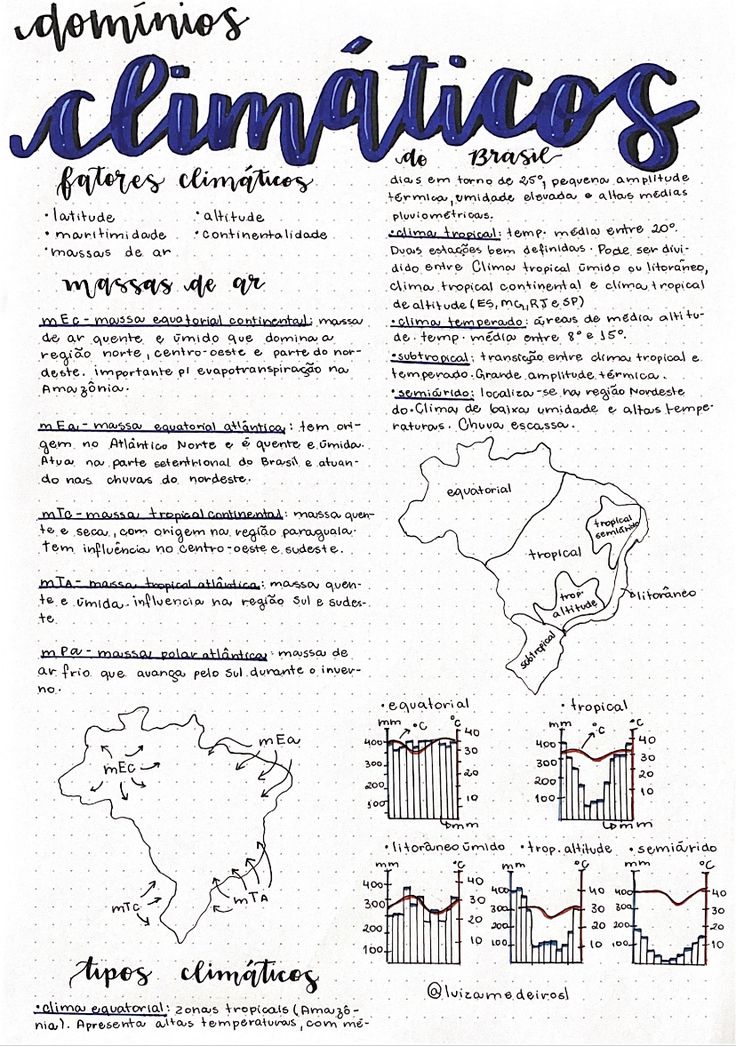 domínios
climáticos
do Brasil
fatores climáticos
• latitude
• altitude
• maritimidade
• continentalidade
• massas de ar
massas de ar
mEc - massa equatorial continental: massa
de ar quente e úmido que domina a
região norte, centro-oeste e parte do nor-
deste. importante p/ evapotranspiração na
Amazônia.
mEa - massa equatorial atlântica: tem ori-
gem no Atlântico Norte e é quente e úmida.
Atua na parte setentrional do Brasil e atuan-
do nas chuvas do nordeste.
mTc - massa tropical continental: massa quen-
te e seca, com origem na região paraguaia.
Tem influência no centro-oeste e sudeste.
mTA - massa tropical atlântica: massa quen-
te e úmida. influencia na região Sul e sudes-
te
mPa - massa polar atlântica: massa de
ar frio que avança pelo Sul durante o inver-
no.
mEc
mEa
mTc
mTA
tipos climáticos
• clima equatorial: zonas tropicais (Amazô-
nia). Apresenta altas temperaturas, com mé-
dias em torno de 25°, pequena amplitude
térmica, umidade elevada e altas médias
pluviométricas.
• clima tropical: temp. média entre 20°.
Duas estações bem definidas. Pode ser divi-
dido entre Clima tropical úmido ou litorâneo,
clima tropical continental e clima tropical
de altitude (ES, MG, RJ e SP)
• clima temperado: áreas de média altitu-
de. temp. média entre 8° e 15°.
• subtropical: transição entre clima tropical e
temperado. Grande amplitude térmica.
• semiárido: localiza-se na região Nordeste
do. Clima de baixa umidade e altas tempe-
raturas. Chuva escassa.
equatorial
tropical
semiárido
tropical
trop.
altitude
litorâneo
subtropical
• equatorial
mm
°C
°C
400
300
200
100
40
30
20
10
mm
• tropical
mm
°C
°C
400
300
200
100
40
30
20
10
mm
• litorâneo úmido
mm
°C
400
300
200
100
40
30
20
10
• trop. altitude
mm
°C
400
300
200
100
40
30
20
10
• semiárido
mm
°C
400
300
200
100
40
30
20
10
@luizamedeirosl